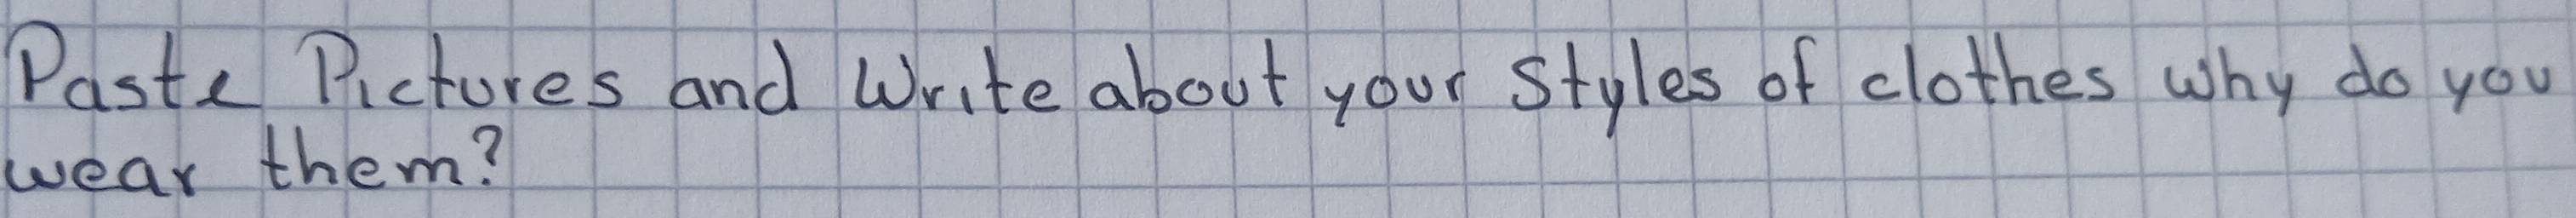 Paste Pictures and Write about your Styles of clothes why do you
wear them?